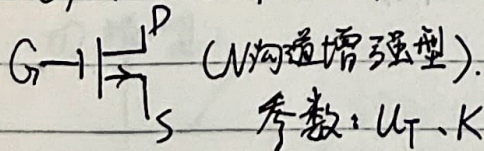 D
G (N沟道增强型).
S 参数: U_T、K